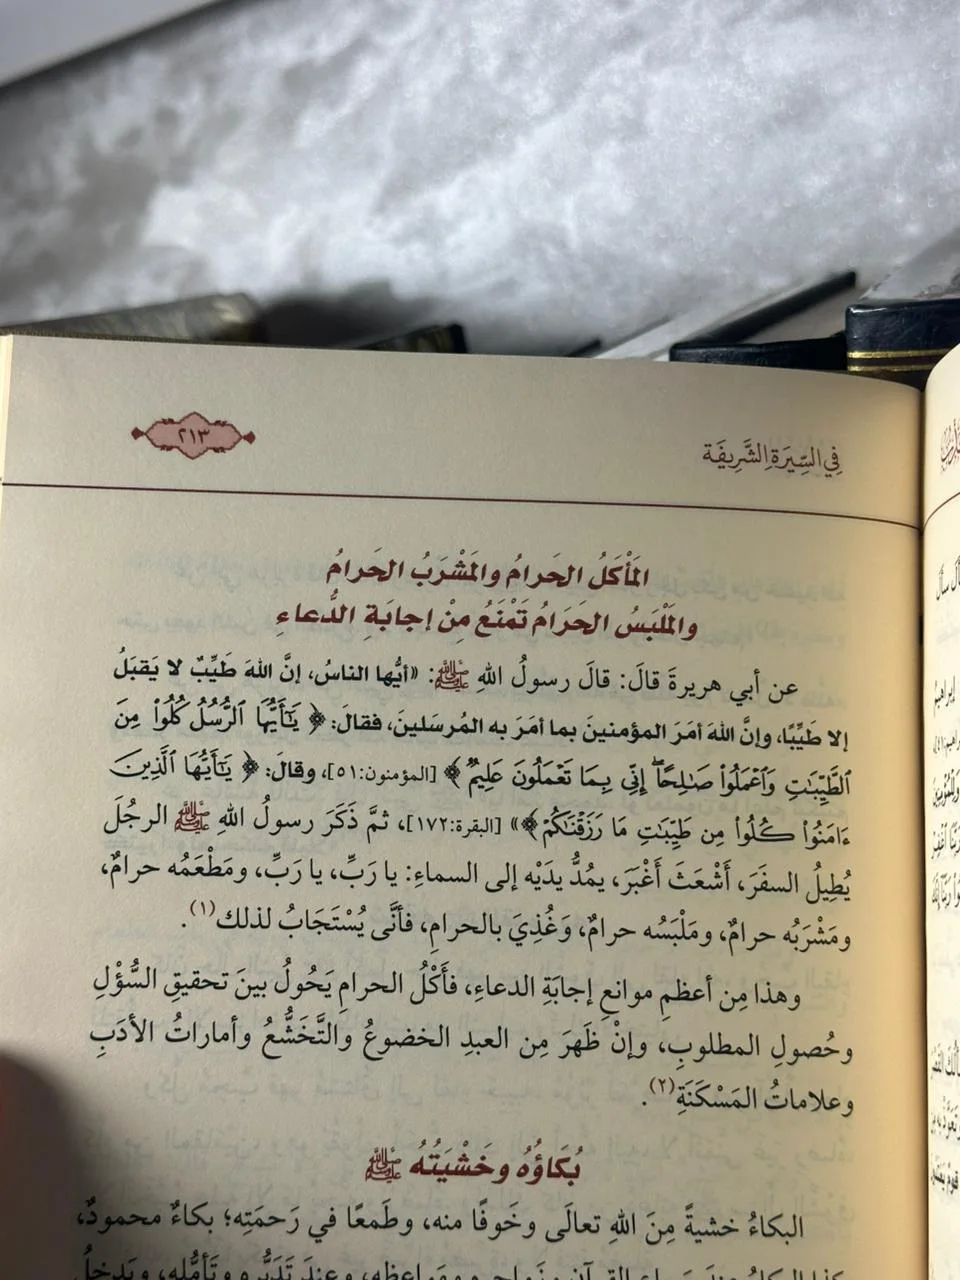 في السِّيرَةِ الشَّرِيفَة
٢١٣
المَأْكَلُ الحَرامُ والمَشْرَبُ الحَرامُ
والمَلْبَسُ الحَرَامُ تَمْنَعُ مِنْ إجابَةِ الدُّعاءِ
عن أبي هريرةَ قالَ: قالَ رسولُ اللهِ ﷺ: «أيُّها الناسُ، إنَّ اللهَ طَيِّبٌ لا يَقبَلُ
إلا طَيِّبًا، وإنَّ اللهَ أمَرَ المؤمنينَ بما أمَرَ به المُرسَلينَ، فقالَ: ﴿ يَٰٓأَيُّهَا ٱلرُّسُلُ كُلُوا۟ مِنَ
ٱلطَّيِّبَٰتِ وَٱعْمَلُوا۟ صَٰلِحًا ۖ إِنِّي بِمَا تَعْمَلُونَ عَلِيمٌ ﴾ [المؤمنون:٥١]، وقالَ: ﴿ يَٰٓأَيُّهَا ٱلَّذِينَ
ءَامَنُوا۟ كُلُوا۟ مِن طَيِّبَٰتِ مَا رَزَقْنَٰكُمْ ﴾» [البقرة:١٧٢]، ثمَّ ذَكَرَ رسولُ اللهِ ﷺ الرجُلَ
يُطِيلُ السفَرَ، أَشْعَثَ أَغْبَرَ، يمُدُّ يدَيْه إلى السماءِ: يا رَبِّ، يا رَبِّ، ومَطْعَمُه حرامٌ،
ومَشْرَبُه حرامٌ، ومَلْبَسُه حرامٌ، وَغُذِيَ بالحرامِ، فأنَّى يُسْتَجَابُ لذلك(١).
وهذا مِن أعظمِ موانعِ إجابَةِ الدعاءِ، فأَكْلُ الحرامِ يَحُولُ بينَ تحقيقِ السُّؤْلِ
وحُصولِ المطلوبِ، وإنْ ظَهَرَ مِن العبدِ الخضوعُ والتَّخَشُّعُ وأماراتُ الأدَبِ
وعلاماتُ المَسْكَنَةِ(٢).
بُكَاؤُهُ وخَشْيَتُهُ ﷺ
البكاءُ خشيةً مِنَ اللهِ تعالَى وخَوفًا منه، وطَمعًا في رَحمَتِه؛ بكاءٌ محمودٌ،